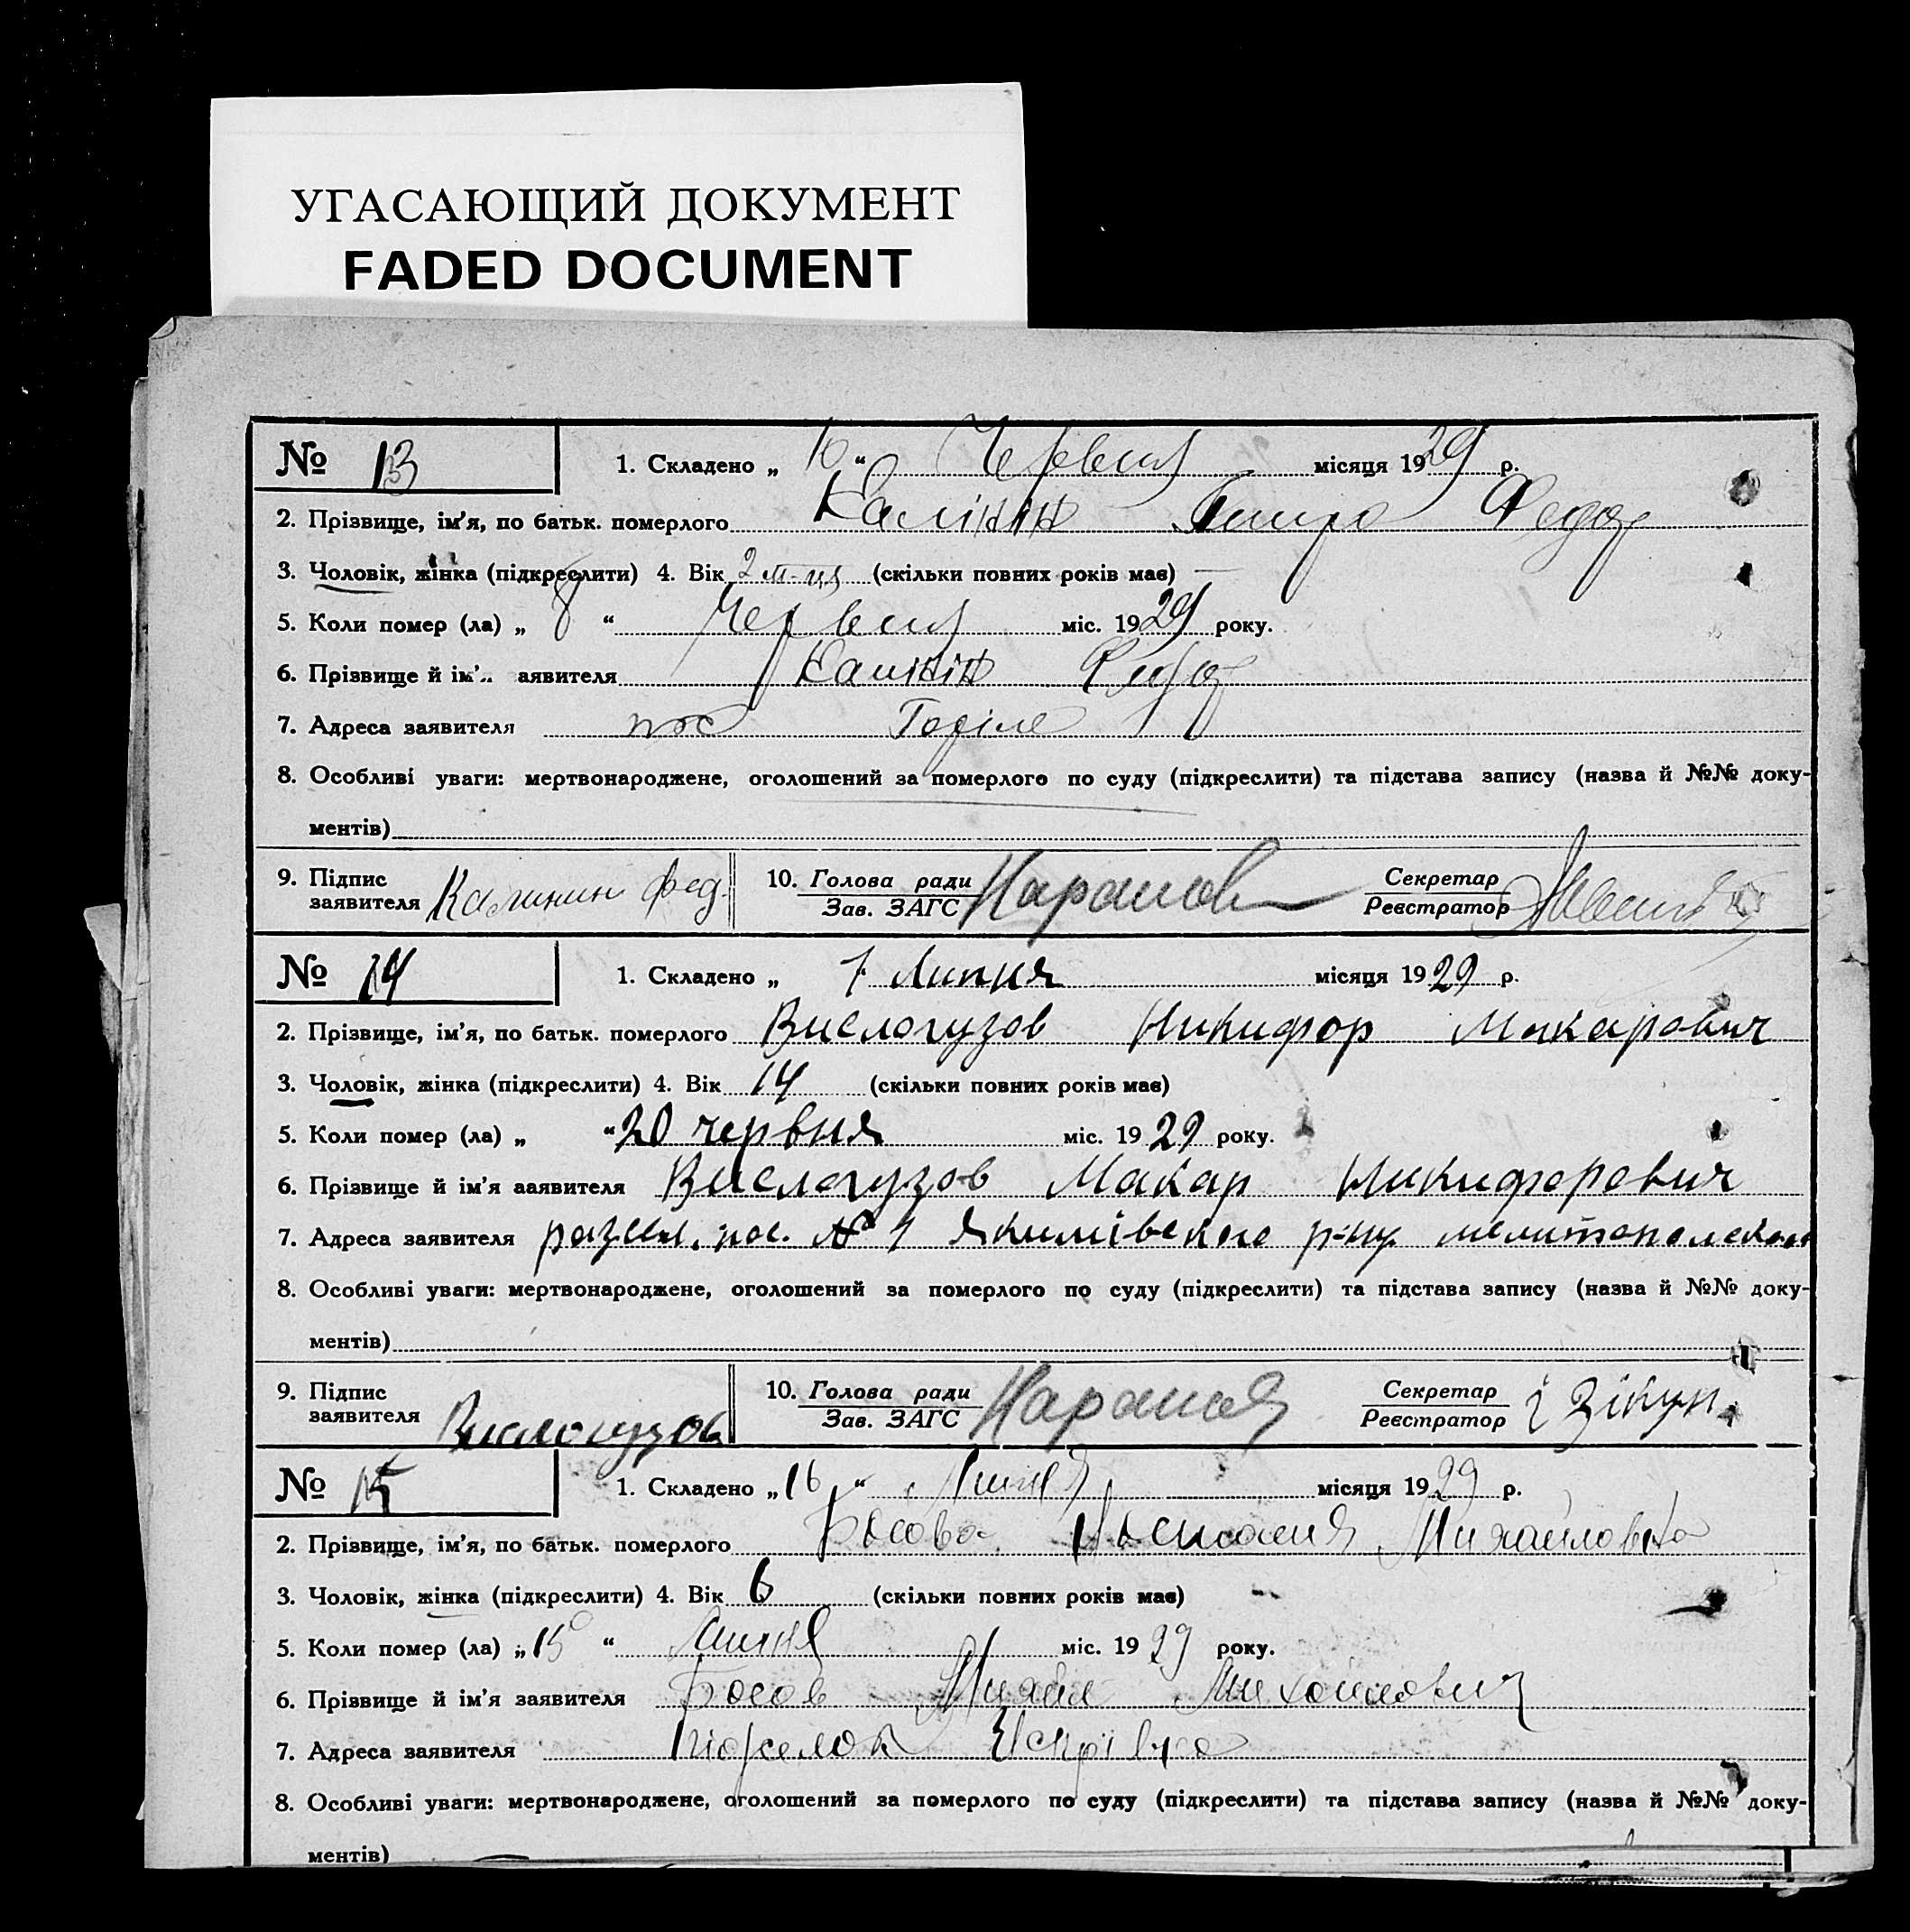 УГАСАЮЩИЙ ДОКУМЕНТ
FADED DOCUMENT
№ 13 1. Складено „ 10 “ Червня місяця 1929 р.
2. Прізвище, ім'я, по батьк. померлого Калінін Петро Федор
3. Чоловік, жінка (підкреслити) 4. Вік 2 м-ця (скільки повних років має) —
5. Коли помер (ла) „ 8 “ Червня міс. 1929 року.
6. Прізвище й ім'.. аявителя Калінін Федор
7. Адреса заявителя пос
8. Особливі уваги: мертвонароджене, оголошений за померлого по суду (підкреслити) та підстава запису (назва й №№ доку-
ментів)
9. Підпис заявителя Калинин Фед. 10. Голова ради Зав. ЗАГС Секретар Реєстратор
№ 14 1. Складено „ 7 “ Липня місяця 1929 р.
2. Прізвище, ім'я, по батьк. померлого Вислогузов Никифор Макарович
3. Чоловік, жінка (підкреслити) 4. Вік 14 (скільки повних років має)
5. Коли помер (ла) „ “ 20 червня міс. 1929 року.
6. Прізвище й ім'я заявителя Вислогузов Макар Никифорович
7. Адреса заявителя пос. № 1 Якимівского р-ну мелитополского
8. Особливі уваги: мертвонароджене, оголошений за померлого по суду (підкреслити) та підстава запису (назва й №№ доку-
ментів)
9. Підпис заявителя Вислогузов 10. Голова ради Зав. ЗАГС Секретар Реєстратор
№ 15 1. Складено „ 16 “ Липня місяця 1929 р.
2. Прізвище, ім'я, по батьк. померлого Босова Михайловна
3. Чоловік, жінка (підкреслити) 4. Вік 6 (скільки повних років має) —
5. Коли помер (ла) „ 15 “ Липня міс. 1929 року.
6. Прізвище й ім'я заявителя Босов Михаил Михайлович
7. Адреса заявителя Посьолок
8. Особливі уваги: мертвонароджене, оголошений за померлого по суду (підкреслити) та підстава запису (назва й №№ доку-
ментів)